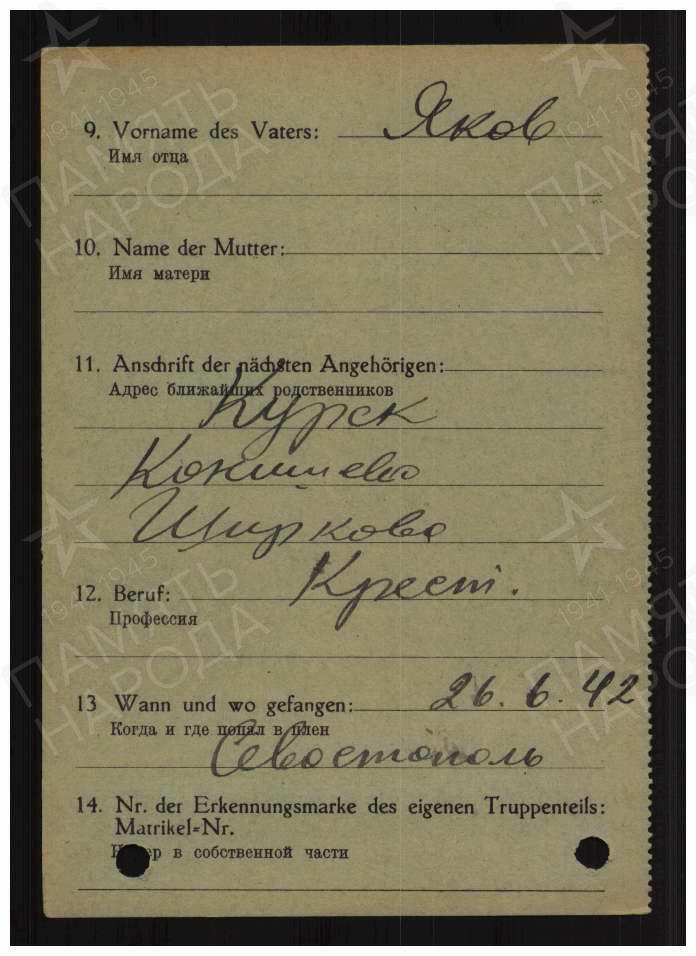 9. Vorname des Vaters: Яков
Имя отца
10. Name der Mutter:
Имя матери
11. Anschrift der nächsten Angehörigen:
Адрес ближайших родственников
Курск
Щиркова
12. Beruf: Крест.
Профессия
13 Wann und wo gefangen: 26. 6. 42
Когда и где попал в плен
Севостополь
14. Nr. der Erkennungsmarke des eigenen Truppenteils:
Matrikel=Nr.
в собственной части
1941-1945
ПАМЯТЬ
НАРОДА